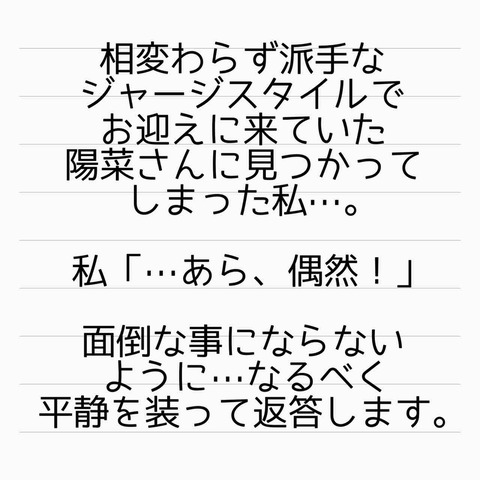 相変わらず派手な
ジャージスタイルで
お迎えに来ていた
陽菜さんに見つかって
しまった私…。
私「…あら、偶然！」
面倒な事にならない
ように…なるべく
平静を装って返答します。